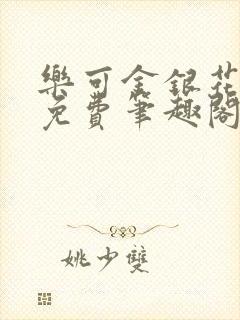 樂可金銀花
免費筆趣閣
姚少雙